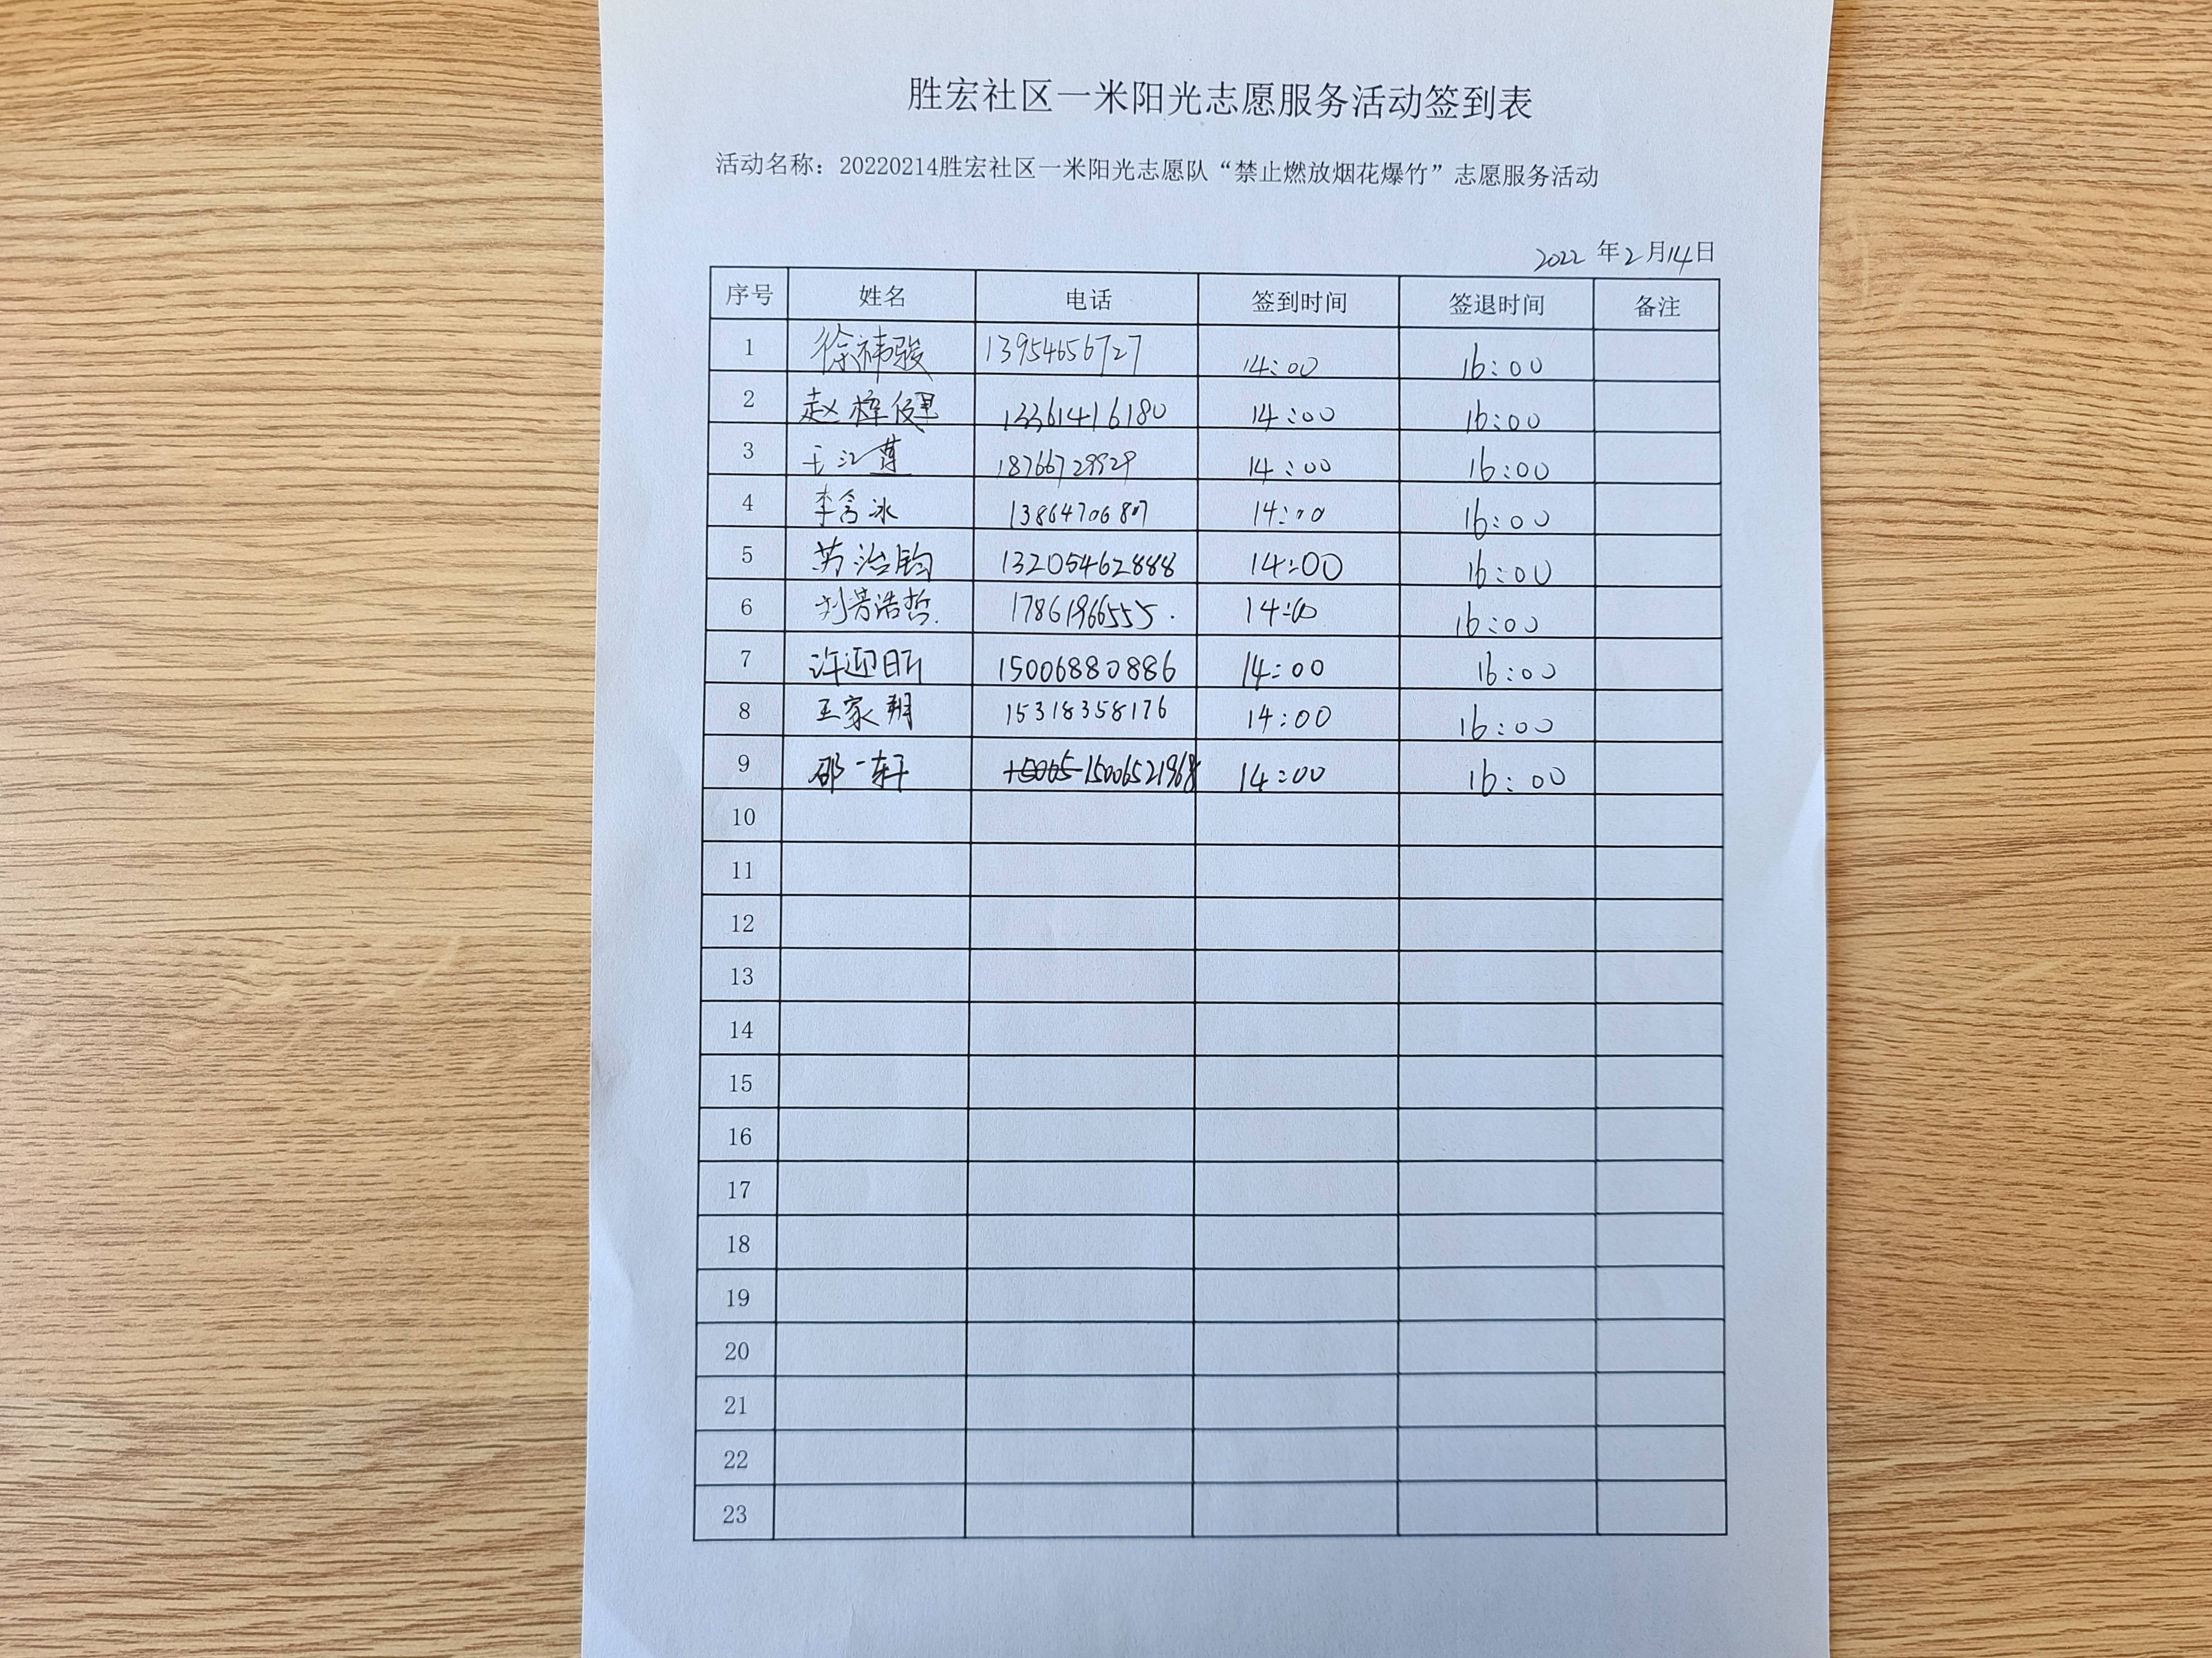 胜宏社区一米阳光志愿服务活动签到表
活动名称：20220214胜宏社区一米阳光志愿队“禁止燃放烟花爆竹”志愿服务活动
2022 年2月14日
序号 姓名 电话 签到时间 签退时间 备注
1 徐祎骏 13954656727 14:00 16:00
2 赵梓健 13361416180 14:00 16:00
3 王江 14:00 16:00
4 李含冰 14:00 16:00
5 治钧 13205462888 14:00 16:00
6 刘芳浩哲 17861966555. 14:00 16:00
7 许迎昕 15006880886 14:00 16:00
8 王家翔 15318358176 14:00 16:00
9 邵一轩 15065 15006521968 14:00 16:00
10
11
12
13
14
15
16
17
18
19
20
21
22
23